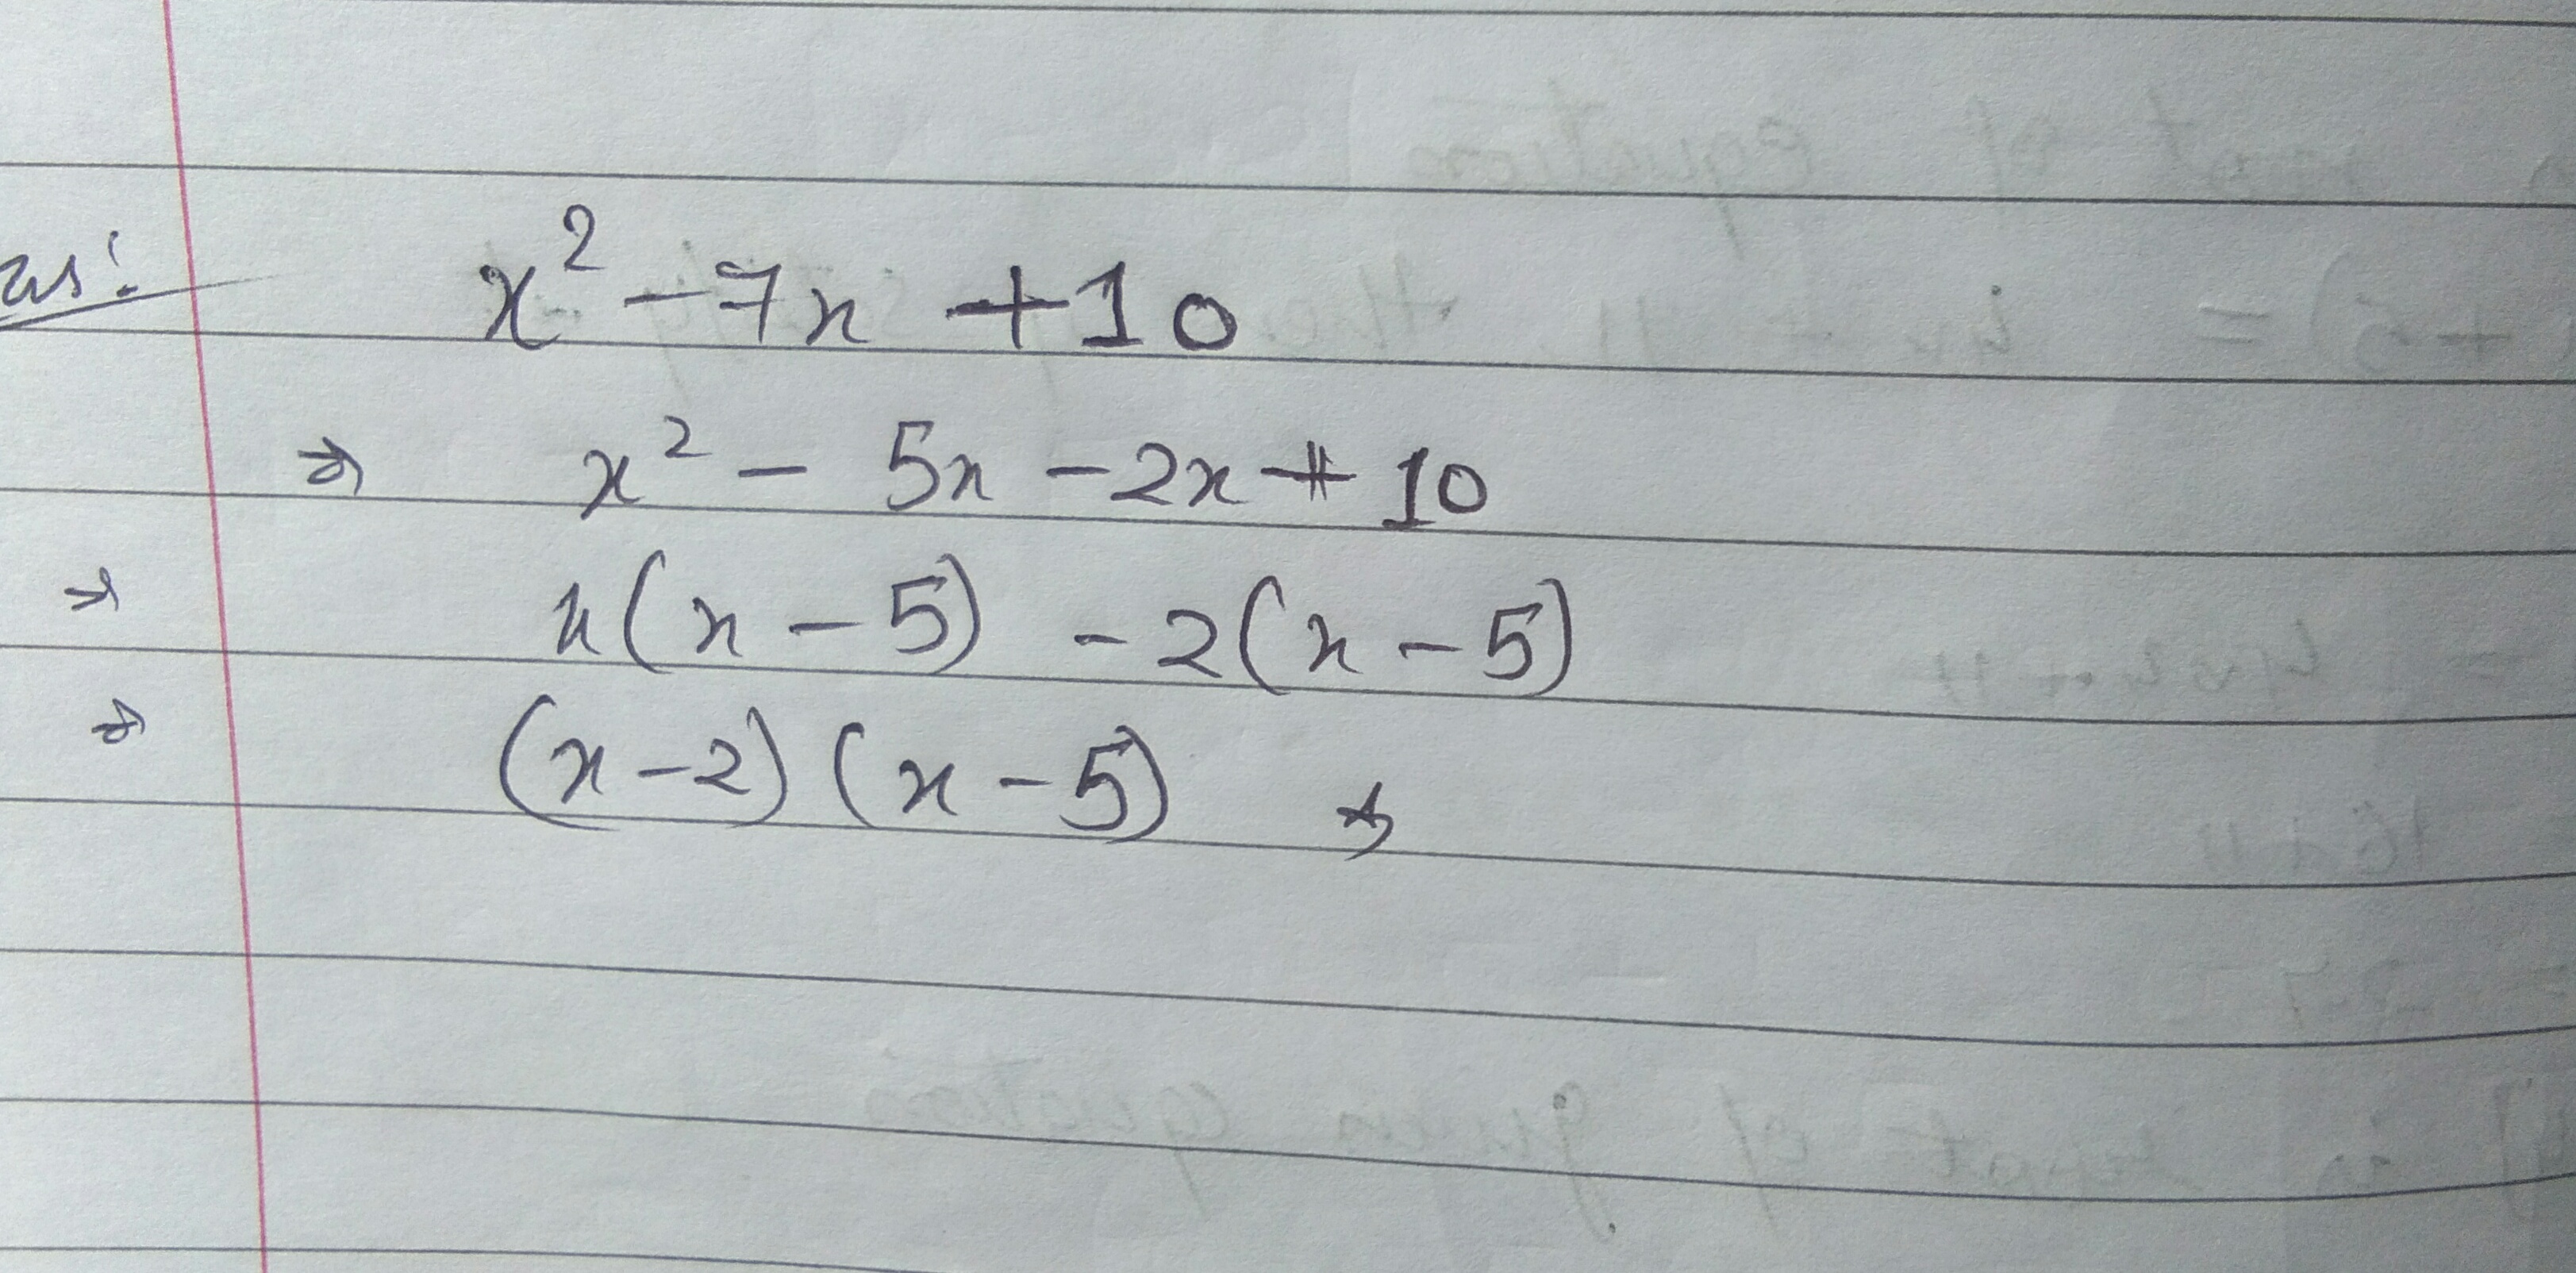 x² - 7x + 10
⇒ x² - 5x - 2x + 10
⇒ x(x - 5) - 2(x - 5)
⇒ (x - 2) (x - 5)